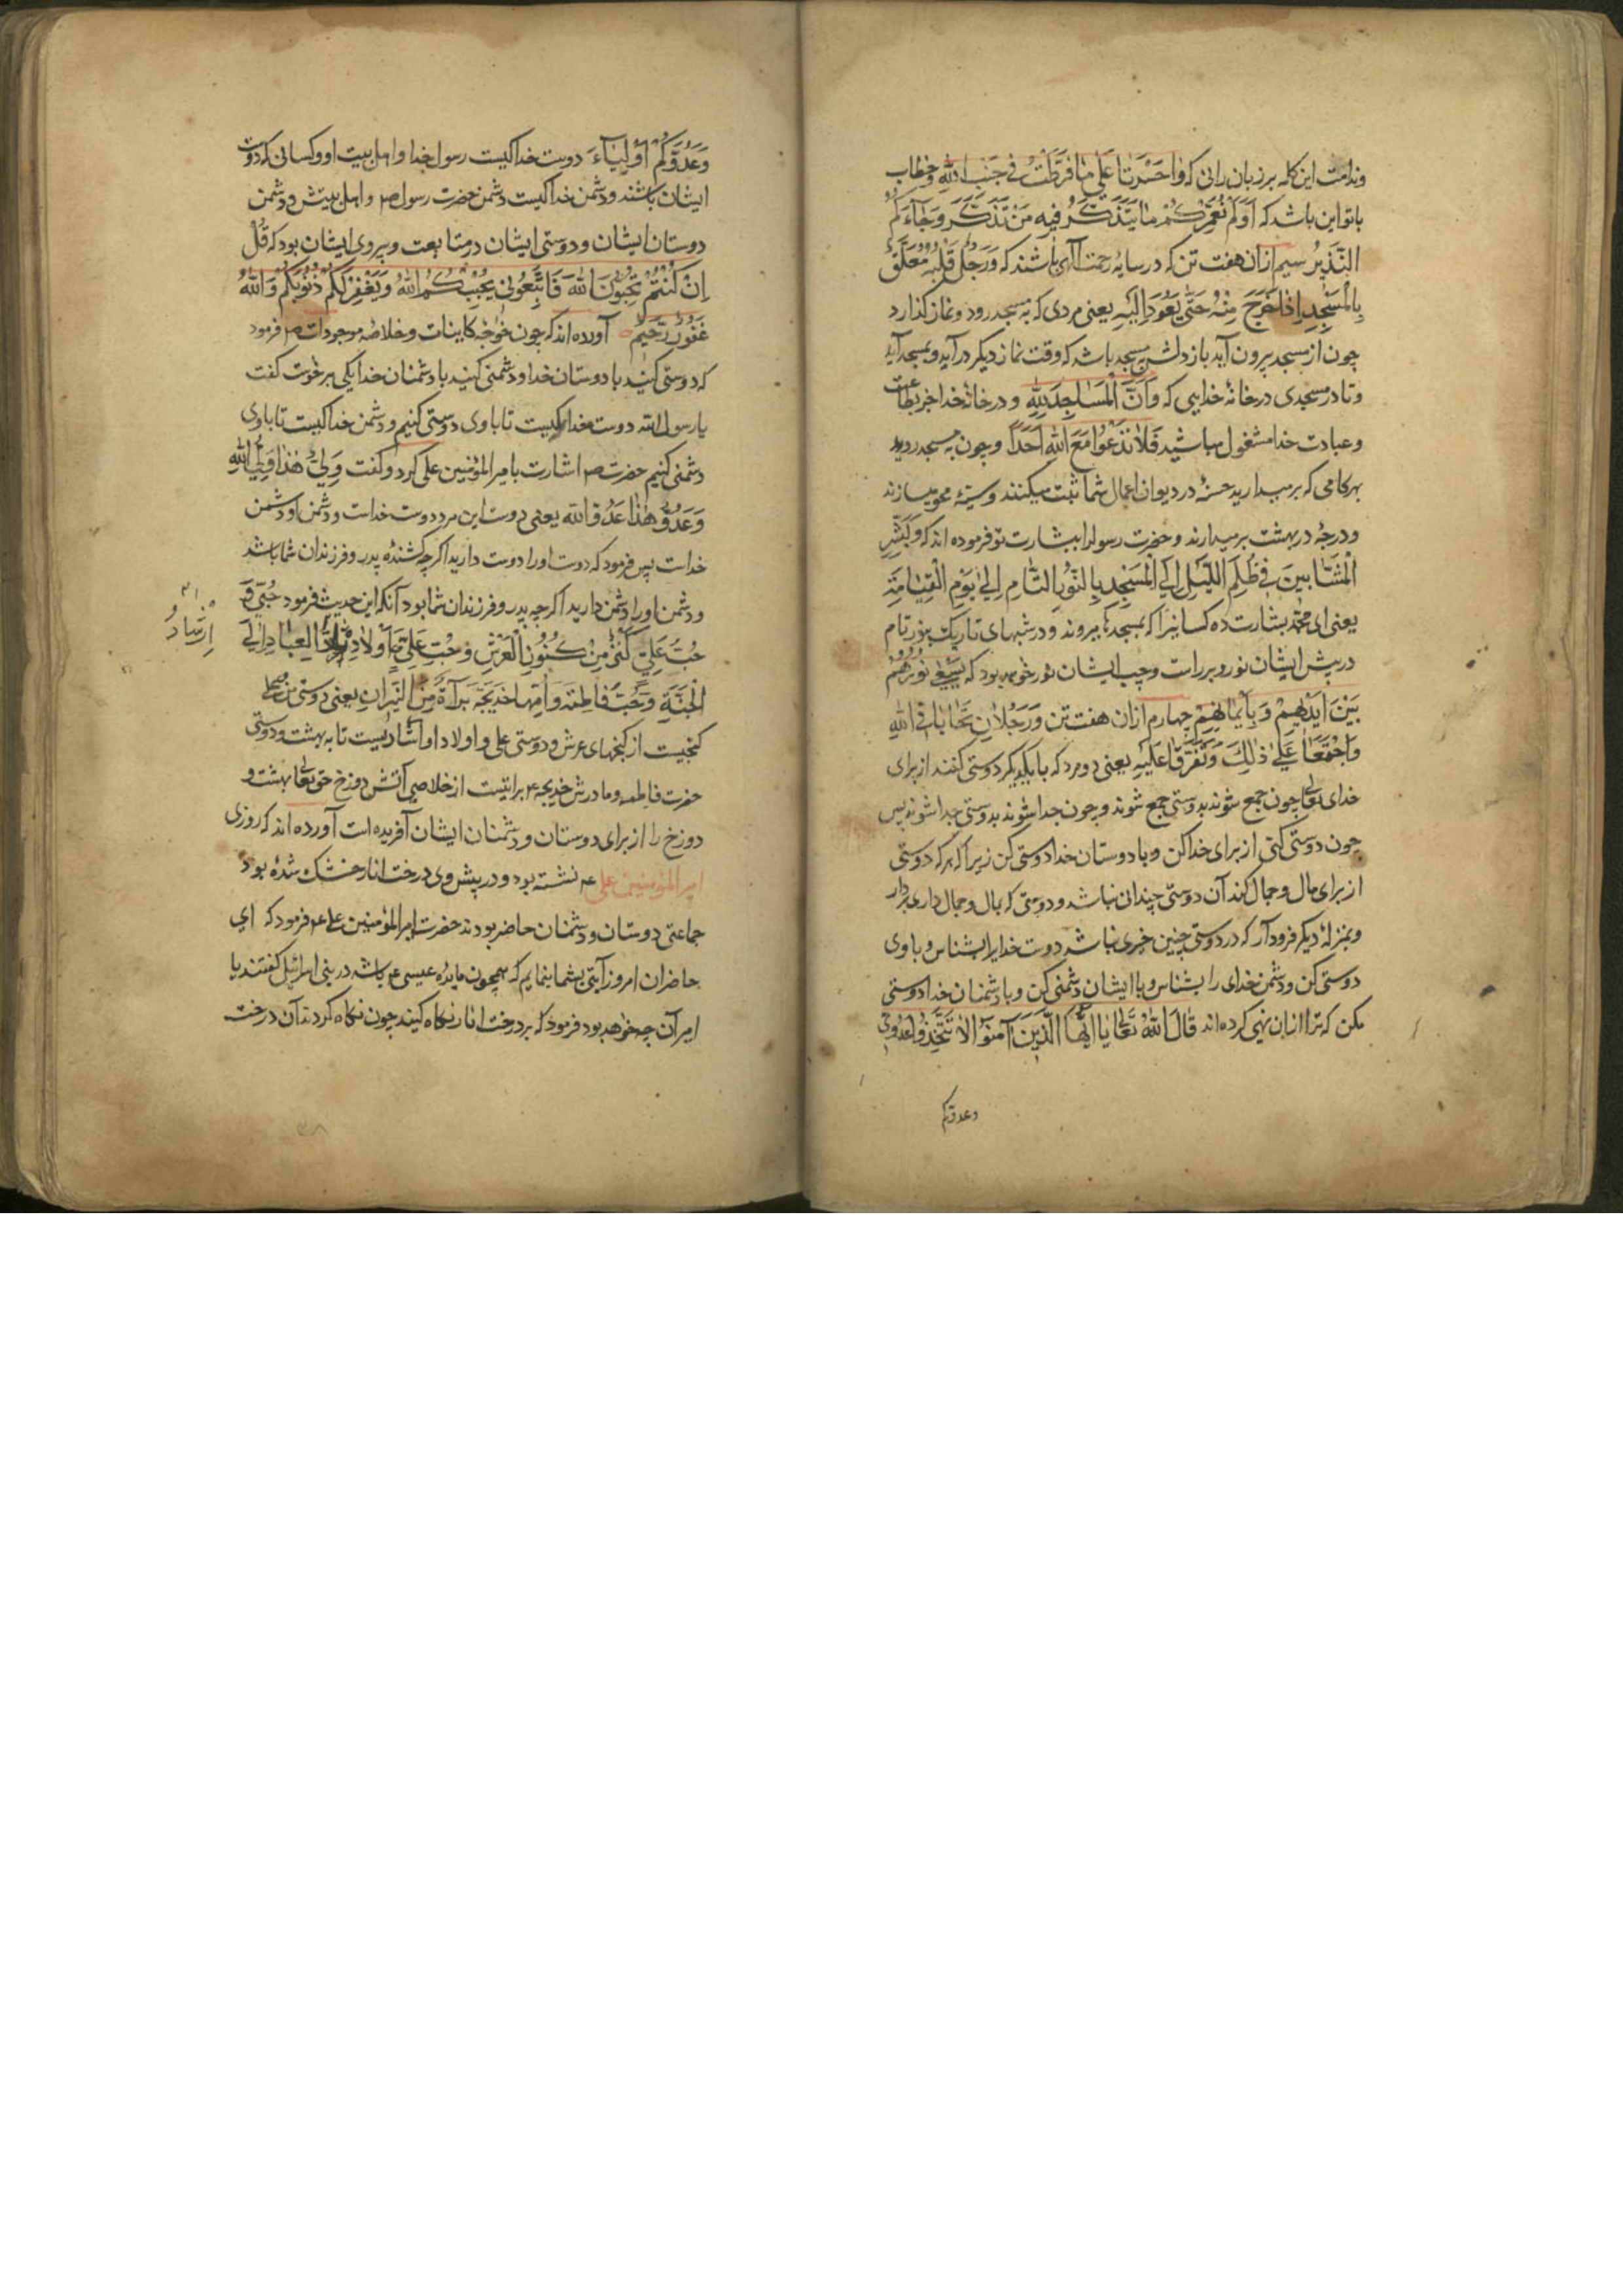 وندامت این کلمه بر زبان رانی که وَا حَسْرَتَا عَلَی مَا فَرَّطْتُ فِی جَنْبِ اللّهِ و خطاب
با تو این باشد که اَوَلَمْ نُعَمِّرْکُمْ مَا یَتَذَکَّرُ فِیهِ مَنْ تَذَکَّرَ وَجَآءَکُمُ
النَّذِیرُ سیم از آن هفت تن که در سایهٔ رحمت آلهی باشند که وَرَجُلٌ قَلْبُهُ مُعَلَّقٌ
بِالْمَسْجِدِ اِذَا خَرَجَ مِنْهُ حَتَّی یَعُودَ اِلَیْهِ یعنی مردی که به مسجد رود و نماز گذارد
چون از مسجد بیرون آید باز دلش به مسجد باشد که وقت نماز دیگر درآید و بمسجد آید
و تا در مسجدی در خانهٔ خدایی که وَاَنَّ الْمَسَاجِدَ لِلّهِ و در خانهٔ خدا جز بطاعت
و عبادت خدا مشغول مباشید فَلَا تَدْعُوا مَعَ اللّهِ اَحَدًا و چون به مسجد روید
بهر کامی که برمیدارید حسنهٔ در دیوان اعمال شما ثبت میکنند و سیئهٔ محو میسازند
و درجهٔ در بهشت برمیدارند و حضرت رسول را ببشارت تو فرموده اند که وَبَشِّرِ
الْمَشَّابِینَ فِی ظُلَمِ اللَّیْلِ اِلَی الْمَسْجِدِ بِالنُّورِ التَّامِ اِلَی یَوْمِ الْقِیَامَةِ
یعنی ای محمد بشارت ده کسانیرا که بمسجدها میروند و در شبهای تاریک بنور تام
در پیش ایشان نور و بر راست و چپ ایشان نور خواهد بود که یَسْعَی نُورُهُمْ
بَیْنَ اَیْدِیهِمْ وَبِاَیْمَانِهِمْ چهارم از آن هفت تن وَرَجُلَانِ تَحَابَا فِی اللّهِ
وَاجْتَمَعَا عَلَی ذَلِکَ وَتَفَرَّقَا عَلَیْهِ یعنی دو مرد که با یکدیگر دوستی کنند از برای
خدای تعالی چون جمع شوند بدوستی جمع شوند و چون جدا شوند بدوستی جدا شوند پس
چون دوستی کنی از برای خدا کن و با دوستان خدا دوستی کن زیرا که هر که دوستی
از برای مال و جمال کند آن دوستی چندان نباشد و دوستی که بمال و جمال داری بردار
و بمنزلهٔ دیگر فرود آر که در دوستی چنین خیری نباشد دوست خدایرا بشناس و با وی
دوستی کن و دشمن خدای را بشناس و با ایشان دشمنی کن و با دشمنان خدا دوستی
مکن که ترا از آن نهی کرده اند قَالَ اللّهُ تَعَالَی یَا اَیُّهَا الَّذِینَ آمَنُوا لَا تَتَّخِذُوا عَدُوِّی
وعدوکم
وَعَدُوَّکُمْ اَوْلِیَآءَ دوست خدا کیست رسول خدا و اهل بیت او و کسانی که دوست
ایشان باشند و دشمن خدا کیست دشمن حضرت رسول ص و اهل بیتش و دشمن
دوستان ایشان و دوستی ایشان در متابعت و پیروی ایشان بود که قُلْ
اِنْ کُنْتُمْ تُحِبُّونَ اللّهَ فَاتَّبِعُونِی یُحْبِبْکُمُ اللّهُ وَیَغْفِرْ لَکُمْ ذُنُوبَکُمْ وَاللّهُ
غَفُورٌ رَحِیمٌ آورده اند که چون خواجه کاینات و خلاصه موجودات ص فرمود
که دوستی کنید با دوستان خدا و دشمنی کنید با دشمنان خدا یکی برخوست گفت
یا رسول الله دوست خدا کیست تا با وی دوستی کنیم و دشمن خدا کیست تا با وی
دشمنی کنیم حضرت ص اشارت بامیر المؤمنین علی کرد و گفت وَلِیُّ هَذَا وَلِیُّ اللّهِ
وَعَدُوُّ هَذَا عَدُوُّ اللّه یعنی دوست این مرد دوست خداست و دشمن او دشمن
خداست پس فرمود که دوست او را دوست دارید اگر چه کشندهٔ پدر و فرزندان شما باشد
و دشمن او را دشمن دارید اگر چه پدر و فرزندان شما بود آنکه این حدیث فرمود حُبِّی وَ
حُبُّ عَلِیٍّ کَنْزٌ مِنْ کُنُوزِ الْعَرْشِ وَحُبُّ عَلِیٍّ وَاَوْلَادِهِ الْعِبَادِ اِلَی
ارشاد
الْجَنَّةِ وَحُبُّ فَاطِمَةَ وَاُمِّهَا خَدِیجَةَ بَرَآةٌ مِنَ النِّیرَانِ یعنی دوستی من و علی
کنجیست از کنجهای عرش و دوستی علی و اولاد او استادیست تا به بهشت و دوستی
حضرت فاطمه و مادرش خدیجه ع براتیست از خلاصی آتش دوزخ حق تعالی بهشت و
دوزخ را از برای دوستان و دشمنان ایشان آفریده است آورده اند که روزی
امیر المؤمنین علی ع نشسته بود و در پیش وی درخت انار خشک شده بود
جماعتی دوستان و دشمنان حاضر بودند حضرت امیر المؤمنین علی ع فرمود که ای
حاضران امروز آیتی بشما بنمایم که همچون مایدهٔ عیسی ع باشد در بنی اسرائیل گفتند یا
امیر آن چه خواهد بود فرمود که بر درخت انار نگاه کنید چون نگاه کردند آن درخت